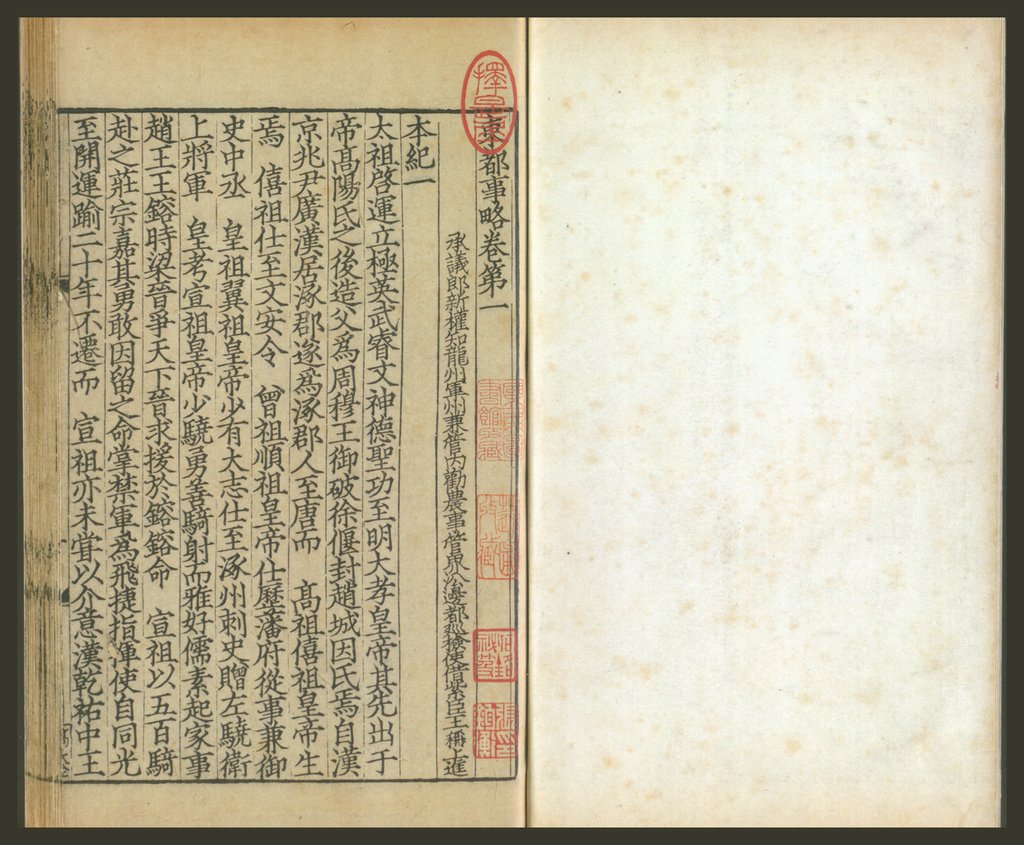 東都事略卷第一
承議郎新權知龍州軍州兼管內勸農事管界沿邊都巡檢使借紫臣王稱上進
本紀一
太祖啓運立極英武睿文神德聖功至明大孝皇帝其先出于
帝高陽氏之後造父爲周穆王御破徐偃封趙城因氏焉自漢
京兆尹廣漢居涿郡遂爲涿郡人至唐而 高祖僖祖皇帝生
焉 僖祖仕至文安令 曾祖順祖皇帝仕歷藩府從事兼御
史中丞 皇祖翼祖皇帝少有大志仕至涿州刺史贈左驍衛
上將軍 皇考宣祖皇帝少驍勇善騎射而雅好儒素起家事
趙王王鎔時梁晉爭天下晉求援於鎔鎔命 宣祖以五百騎
赴之莊宗嘉其勇敢因留之命掌禁軍爲飛捷指揮使自同光
至開運踰二十年不遷而 宣祖亦未甞以介意漢乾祐中王